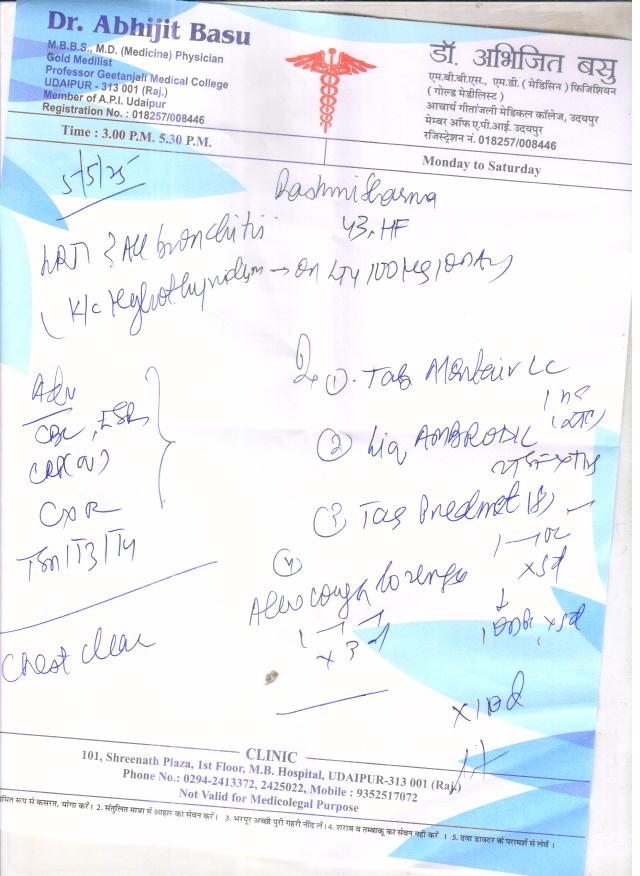 Dr. Abhijit Basu
M.B.B.S., M.D. (Medicine) Physician
Gold Medilist
Professor Geetanjali Medical College
UDAIPUR - 313 001 (Raj.)
Member of A.P.I. Udaipur
Registration No. : 018257/008446
Time : 3.00 P.M. 5.30 P.M.
डॉ. अभिजित बसु
एम.बी.बी.एस., एम.डी. ( मेडिसिन ) फिजिशियन
( गोल्ड मेडीलिस्ट )
आचार्य गीतांजली मेडिकल कॉलेज, उदयपुर
मेम्बर ऑफ ए.पी.आई. उदयपुर
रजिस्ट्रेशन नं. 018257/008446
Monday to Saturday
5/5/25
Rashmi Sharma
43
LRTI ? All bronchitis
K/c Hypothyroidism → on LT4 100 Mcg
Adv
CBC, ESR
CRP
CXR
TSH/T3/T4
Chest clear
① Tab Montair LC
② Liq AMBRODIL
③ Tab Predmet (8)
1
x 5d
↓
1 x 5d
④
Alex cough lozenges
1
x 3 d
x 10d
CLINIC
101, Shreenath Plaza, 1st Floor, M.B. Hospital, UDAIPUR-313 001 (Raj.)
Phone No.: 0294-2413372, 2425022, Mobile : 9352517072
Not Valid for Medicolegal Purpose
रूप से कसरत, योगा करें। 2. संतुलित मात्रा में आहार का सेवन करें। 3. भरपूर अच्छी पुरी गहरी नींद लें। 4. शराब व तम्बाकू का सेवन नहीं करें । 5. दवा डाक्टर के परामर्श से लेवें ।